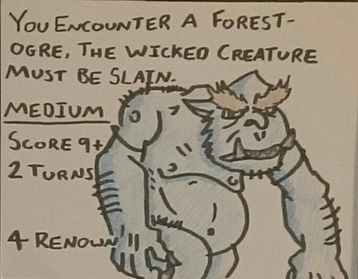 You Encounter a Forest-
Ogre, The Wicked Creature
Must Be Slain.
Medium
Score 9+
2 Turns
4 Renown"